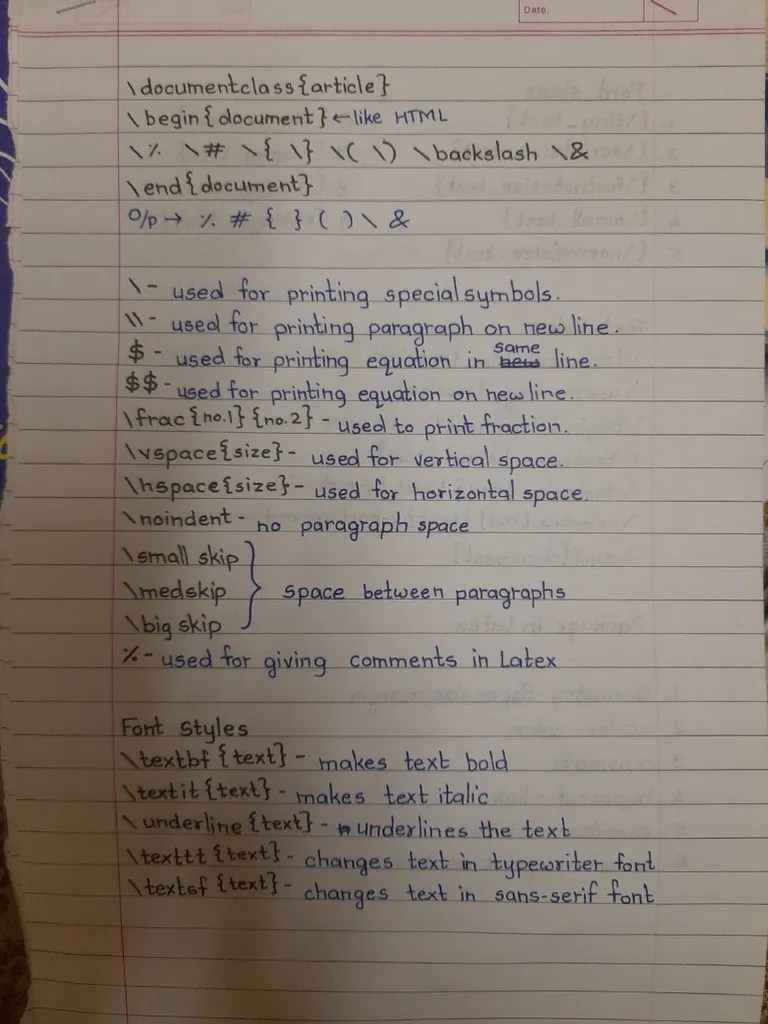 Date:
\documentclass{article}
\begin{document} ← like HTML
\% \# \{ \} \( \) \backslash \&
\end{document}
O/p → % # { } ( ) \ &
\ - used for printing special symbols.
\\ - used for printing paragraph on new line.
$ - used for printing equation in same line.
$$ - used for printing equation on new line.
\frac{no.1}{no.2} - used to print fraction.
\vspace{size} - used for vertical space.
\hspace{size} - used for horizontal space.
\noindent - no paragraph space
\small skip
\medskip } space between paragraphs
\big skip
% - used for giving comments in Latex
Font Styles
\textbf{text} - makes text bold
\textit{text} - makes text italic
\underline{text} - underlines the text
\texttt{text} - changes text in typewriter font
\textsf{text} - changes text in sans-serif font